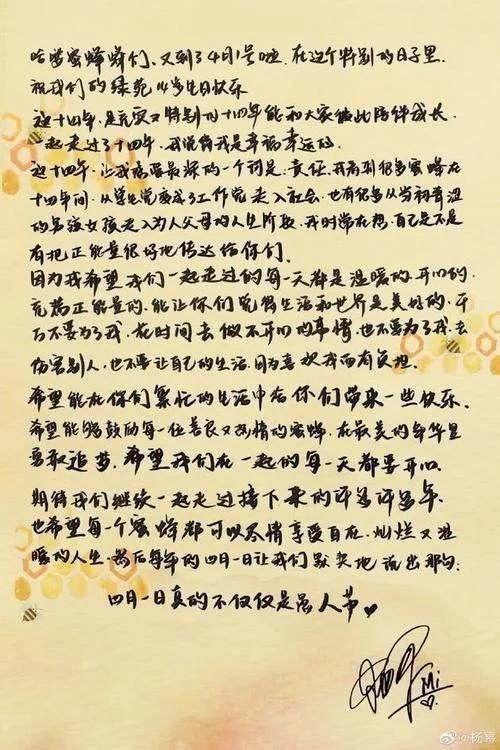 哈啰蜜蜂蜂们、又到了4月1号啦、在这个特别的日子里、
祝我们的绿苑14岁生日快乐
这十四年,是充实又特别的十四年能和大家彼此陪伴成长、
一起走过了十四年,我觉得我是幸福幸运的.
这十四年,让我感受最深的一个词是:责任,我看到很多蜜蜂在
十四年间、从学生党变成了工作党走入社会、也有很多从当初青涩
的男孩女孩走入为人父母的人生阶段、我时常在想、自己是不是
有把正能量很好地传达给你们、
因为我希望我们一起走过的每一天都是温暖的、开心的、
充满正能量的、能让你们觉得生活和世界是美好的、千
万不要为了我、花时间去做不开心的事情、也不要为了我、去
伤害别人,也不要让自己的生活、因为喜欢我而有负担.
希望能在你们繁忙的生活中给你们带来一些快乐、
希望能够鼓励每一位善良又热情的蜜蜂、在最美的年华里
勇敢追梦、希望我们在一起的每一天都要开心、
期待我们继续一起走过接下来的许多许多年、
也希望每一个蜜蜂都可以尽情享受自在、灿烂又温
暖的人生、然后每年的四月一日让我们默契地说出那句:
四月一日真的不仅仅是愚人节
Mi
@杨幂